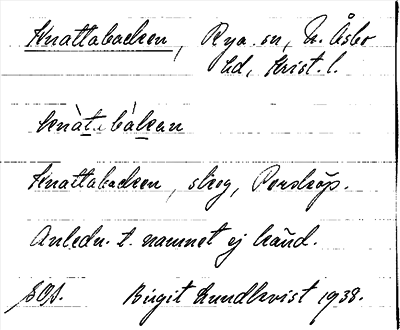 Knattabacken, Rya sn, N. Åsbo
hd, Krist. l.
knàta bàkan
Knattabacken, skog, Perstorp.
Anledn. t. namnet ej känd.
Birgit Lundkvist 1938.